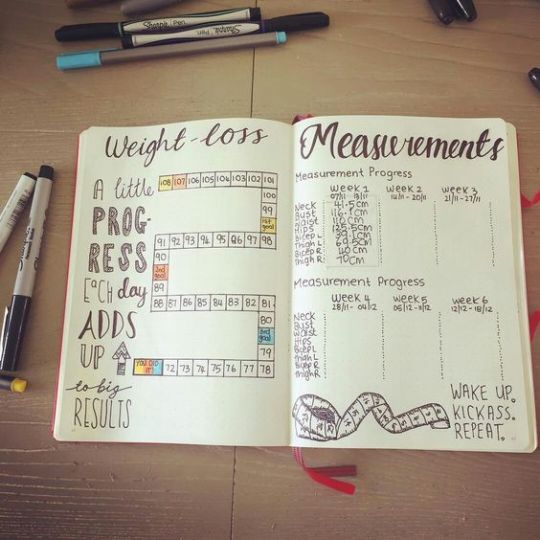 Sharpie Pen
Sharpie Pen
Weight-loss
A little
PROG-
RESS
EACH day
ADDS
UP
to big
RESULTS
108 107 106 105 104 103 102 101
100
99
1st goal
91 92 93 94 95 96 97 98
90
2nd goal
89
88 87 86 85 84 83 82 81
80
3rd goal
79
YOU DID IT! 72 73 74 75 76 77 78
Measurements
Measurement Progress
week 1 week 2 week 3
07/11 - 13/11 14/11 - 20/11 21/11 - 27/11
Neck 41.5cm
Bust 116.1cm
Waist 110cm
Hips 125.5cm
Bicep L
Thigh L 69.5cm
Bicep R 40cm
Thigh R 70cm
Measurement Progress
week 4 week 5 week 6
28/11 - 04/12 05/12 - 11/12 12/12 - 18/12
Neck
Bust
Waist
Hips
Bicep L
Thigh L
Bicep R
Thigh R
WAKE UP.
KICKASS.
REPEAT.